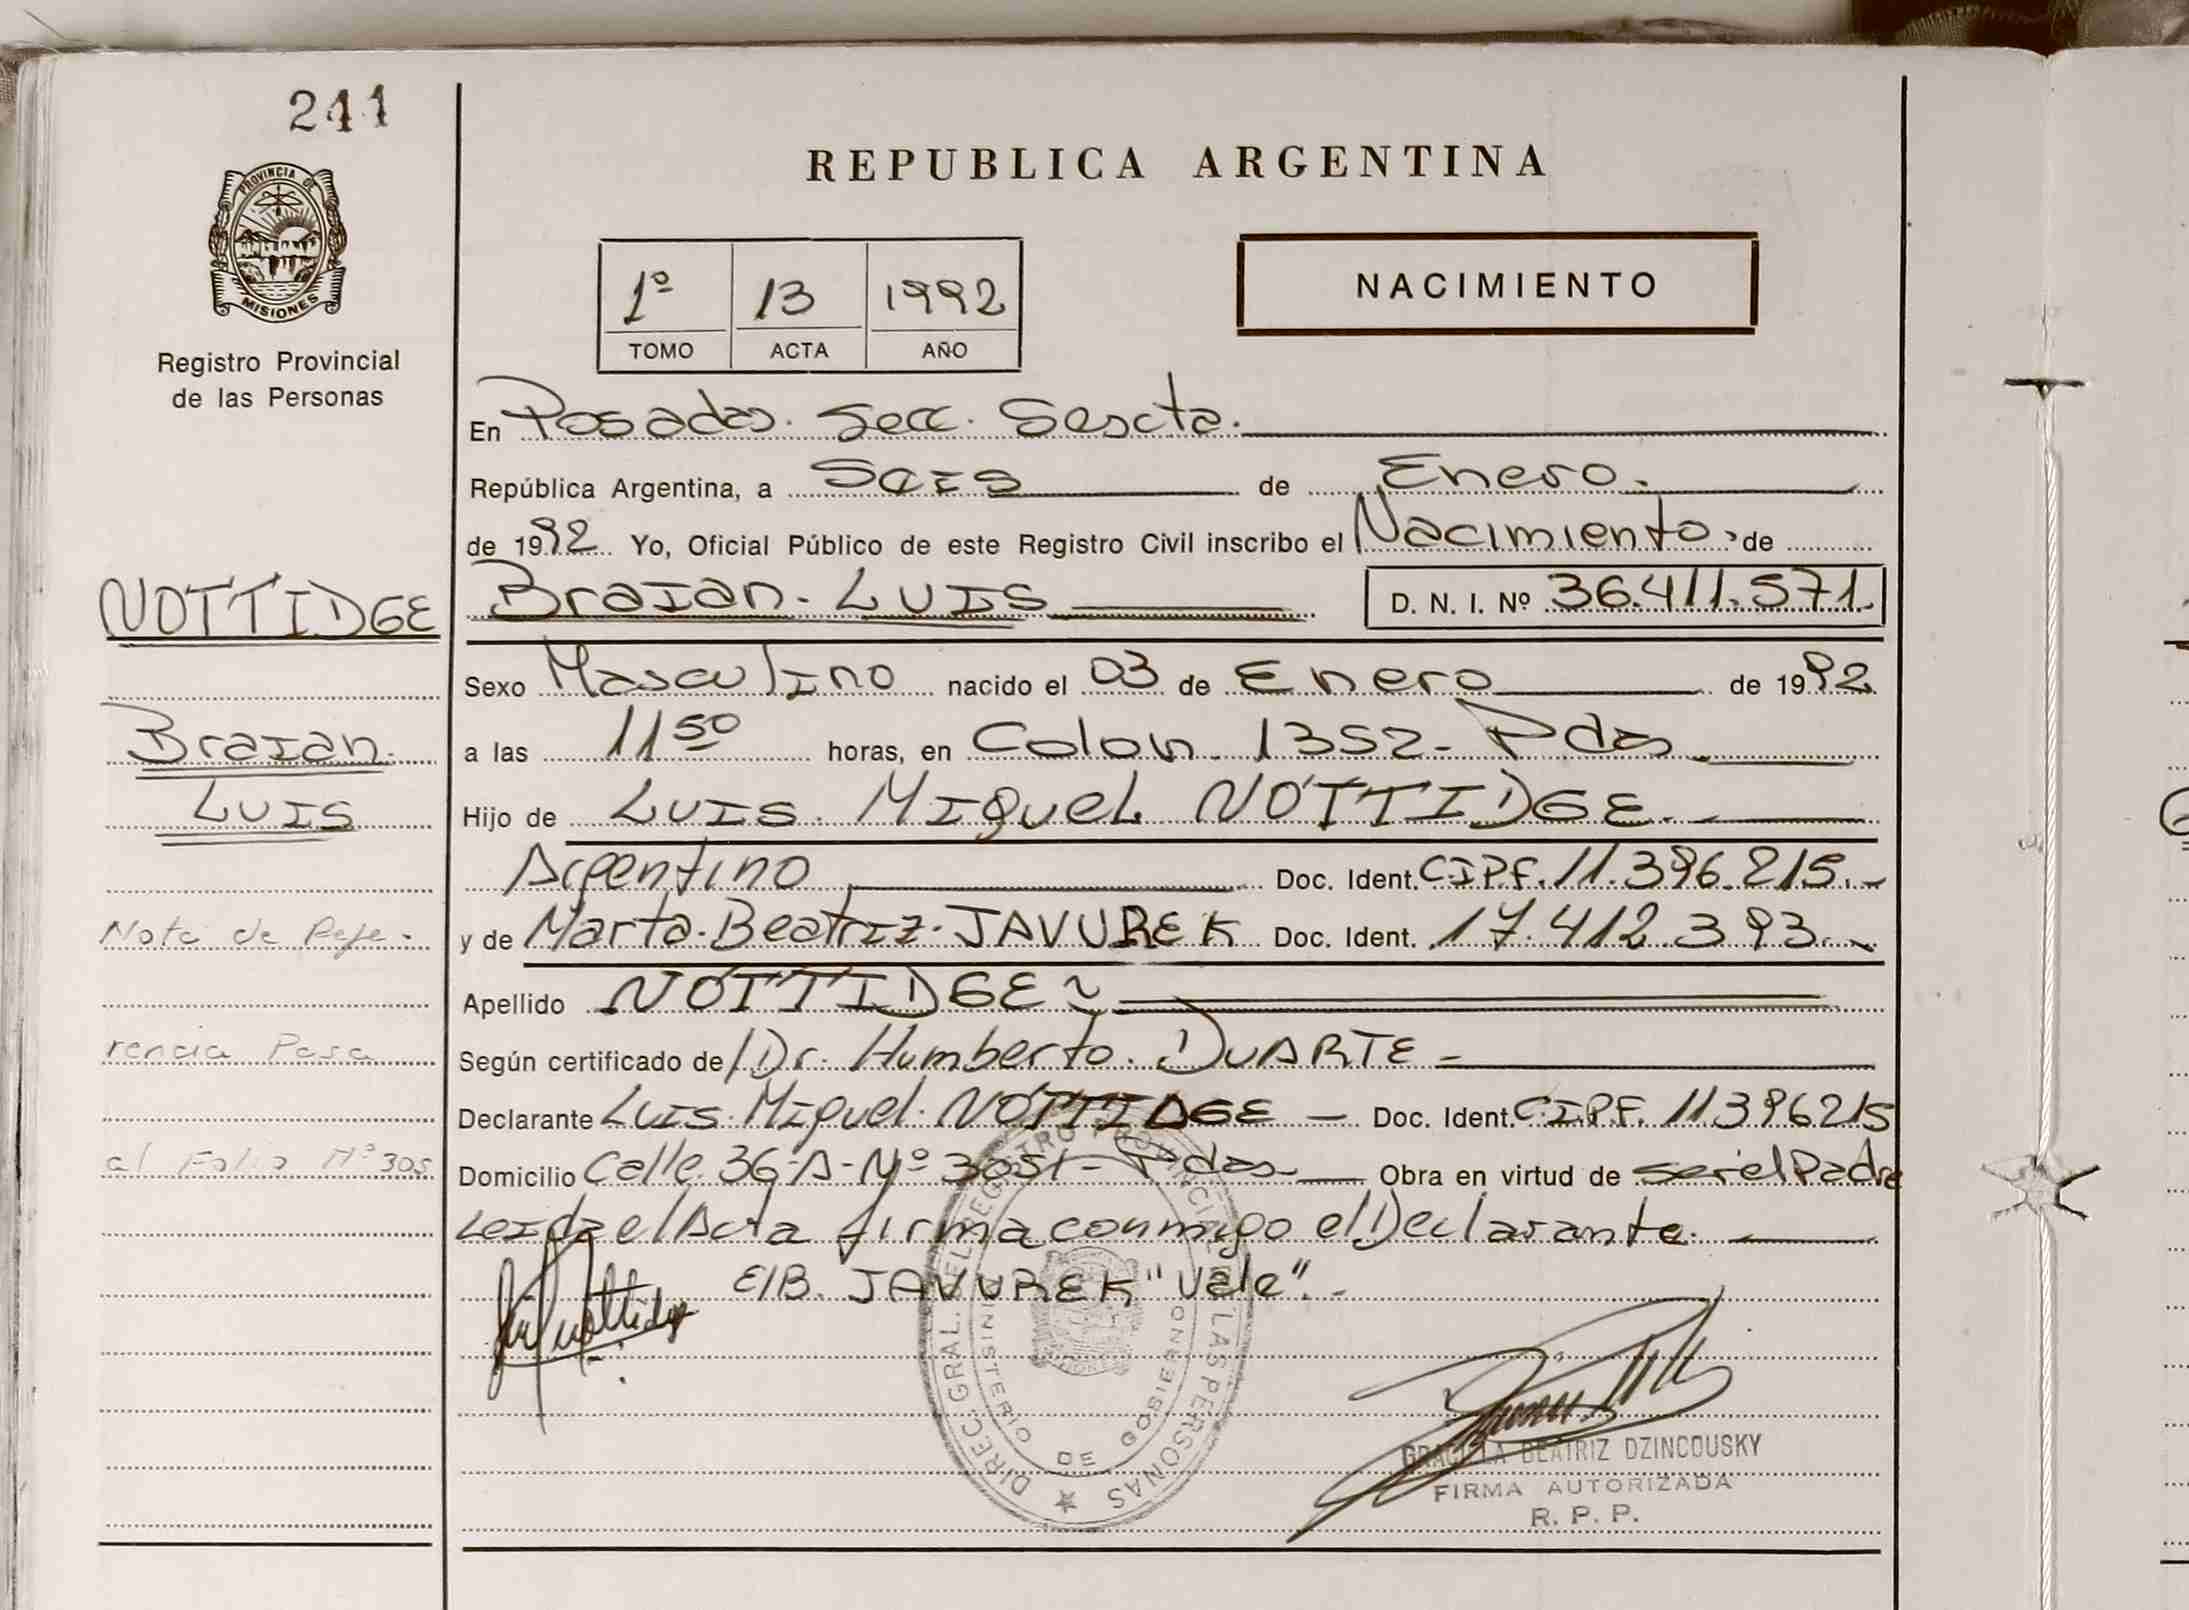 241
PROVINCIA DE
MISIONES
Registro Provincial
de las Personas
REPUBLICA ARGENTINA
1º 13 1992
TOMO ACTA AÑO
NACIMIENTO
En Posadas. Secc. Sescta.
República Argentina, a Seis de Enero.
de 1992 Yo, Oficial Público de este Registro Civil inscribo el Nacimiento de
NOTTIDGE
Braian. Luis D. N. I. Nº 36.411.571.
Sexo Masculino nacido el 03 de Enero de 1992
Braian.
a las 11 50 horas, en Colon 1352- Pdas
Luis
Hijo de Luis Miguel NOTTIDGE.
Argentino Doc. Ident. CIPF. 11.396.215.-
Nota de Refe-
y de Marta. Beatriz. JAVUREK Doc. Ident. 17.412.393.-
Apellido NOTTIDGE
rencia Pasa
Según certificado de Dr. Humberto. DUARTE -
Declarante Luis. Miguel. NOTTIDGE - Doc. Ident. CIPF. 11396215
al Folio Nº 305
Domicilio Calle 36-A-Nº 3051- Pdas- Obra en virtud de ser el Padre
Leida el Acta firma conmigo el Declarante.
E/B. JAVUREK "Vale".-
DIREC. GRAL. DEL REGISTRO PROVINCIAL DE LAS PERSONAS
MINISTERIO DE GOBIERNO
GRACIELA BEATRIZ DZINCOUSKY
FIRMA AUTORIZADA
R. P. P.